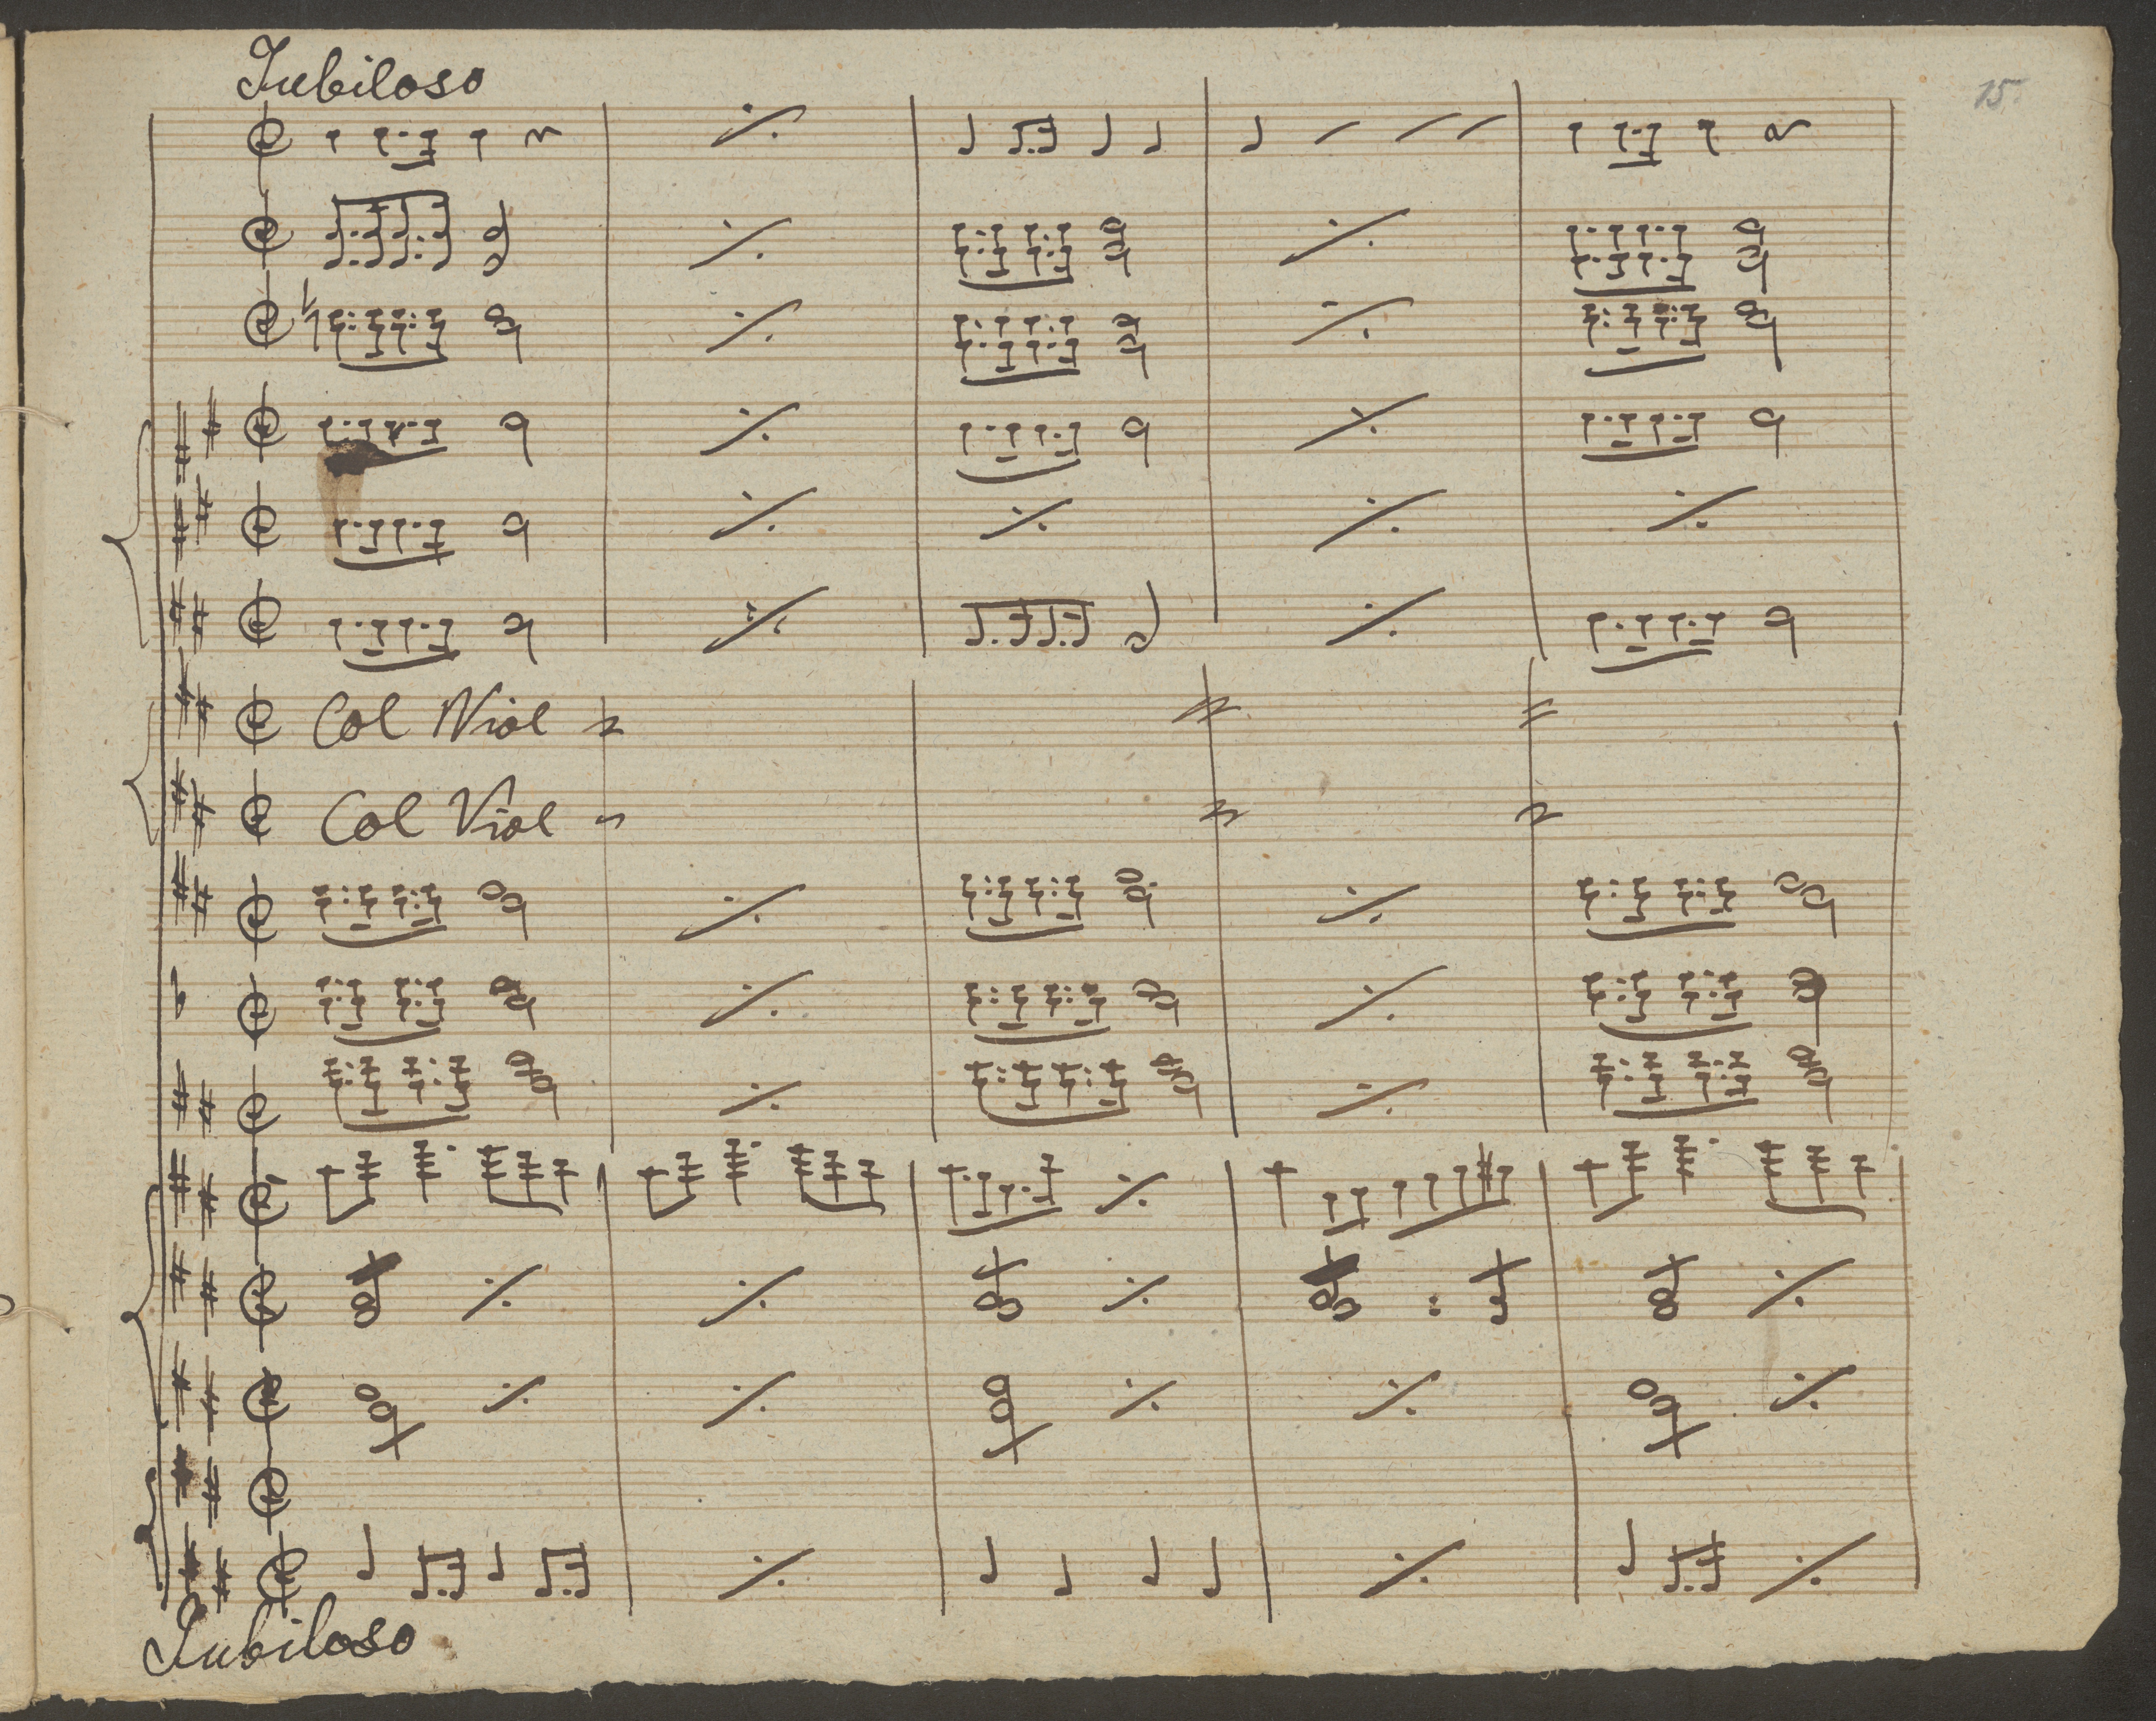 Jubiloso
15.
Col Viol
Col Viol
Jubiloso